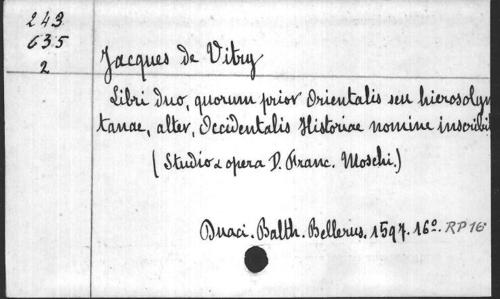 243
635
2
Jacques de Vitry
Libri duo, quorum prior Orientalis seu hierosolym
tanae, alter, Occidentalis Historiae nomine inscribi
(Studio & opera D. Franc. Moschi.)
Duaci. Balth. Bellerus. 1597. 16º. RP 16